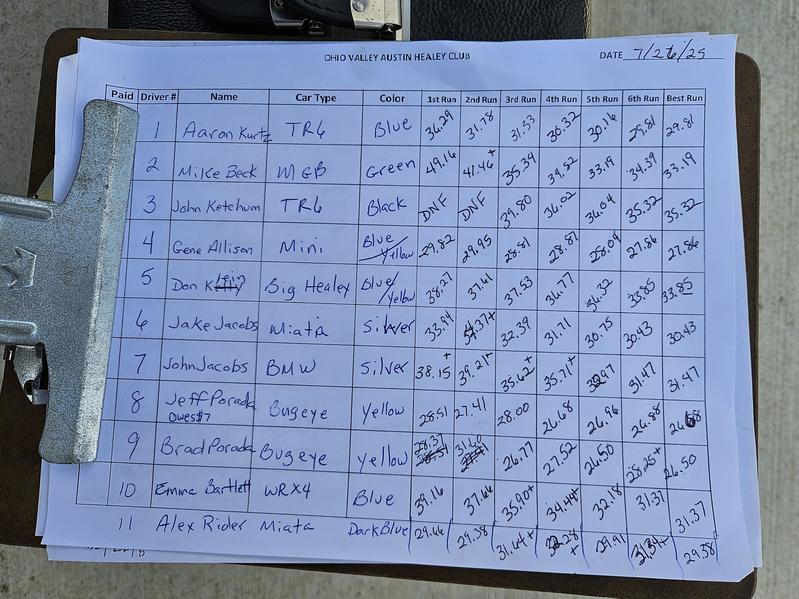 OHIO VALLEY AUSTIN HEALEY CLUB DATE 7/26/25
Paid Driver # Name Car Type Color 1st Run 2nd Run 3rd Run 4th Run 5th Run 6th Run Best Run
1 Aaron Kurtz TR6 Blue 36.29 31.78 31.53 30.32 30.16 29.81 29.81
2 Mike Beck MGB Green 49.16 41.46+ 35.39 34.52 33.19 34.39 33.19
3 John Ketchum TR6 Black DNF DNF 39.80 36.02 36.04 35.32 35.32
4 Gene Allison Mini Blue/Yellow 29.82 29.95 28.81 28.87 28.04 27.86 27.86
5 Don Big Healey Blue/Yellow 38.27 37.61 37.53 36.77 36.32 33.85 33.85
6 Jake Jacobs Miata Silver 33.94 32.39 31.71 30.75 30.43 30.43
7 John Jacobs BMW Silver 38.15+ 39.21+ 35.62+ 35.71+ 32.97 31.47 31.47
8 Jeff Porada Bugeye Yellow 28.51 27.41 28.00 26.68 26.96 26.88 26.68
owes $7
9 Brad Porada Bugeye Yellow 28.37 31.60 26.77 27.52 26.50 28.25+ 26.50
10 Emma Bartlett WRX4 Blue 39.16 37.66 35.90+ 34.44+ 32.18 31.37 31.37
11 Alex Rider Miata Dark Blue 29.66 29.38 31.64+ 32.28+ 29.91 31.34+ 29.38